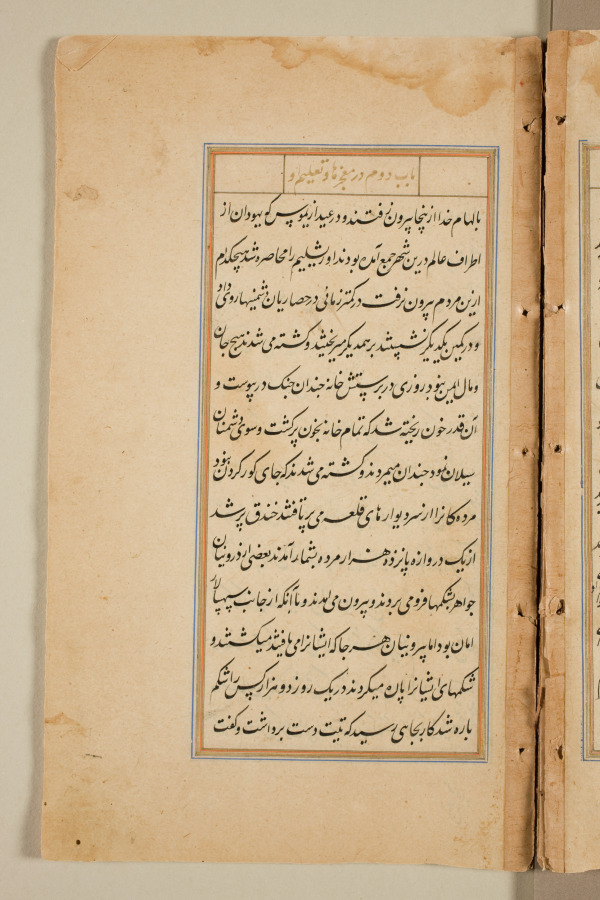 باب دوم در معجزها و تعلیم او
بالهام خدا ازینجا بیرون رفتند و در عید ازیموس که یهودان از
اطراف عالم درین شهر جمع آمده بودند اورشلیم را محاصره شد هیچکدام
ازین مردم بیرون نرفت در کمتر زمانی در حصاریان دشمنیها روی داد
و در کمین یکدیگر نشستند بر همدیگر میریختند و کشته می شدند هیچ جان
و مال ایمن نبود روزی در پرستش خانه چندان جنک در پیوست و
آن قدر خون ریخته شد که تمام خانه بخون پر کشت و سوی دشمنان
سیلان نمود چندان میمردند و کشته می شدند که جای کور کردن نبود
مرده کانرا از سر دیوارهای قلعه می بر تافتند خندق پر شد
از یک دروازه پانزده هزار مرده بشمار آمدند بعضی از درونیان
جواهر بشکمها فرو می بردند و بیرون می آمدند و با آنکه از جانب سپهسالار
امان بود اما بیرونیان هر جا که ایشانرا می یافتند میکشتند و
شکمهای ایشانرا پاره میکردند در یک روز دو هزار کس را شکم
پاره شد کار بجاهی رسید که تیت دست برداشت و کفت